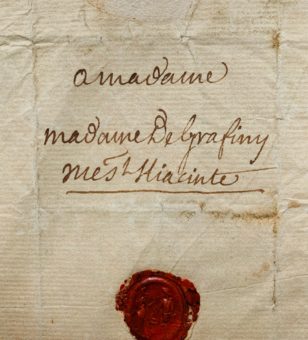 a madame
madame De Grafiny
ruë St Hiacinte